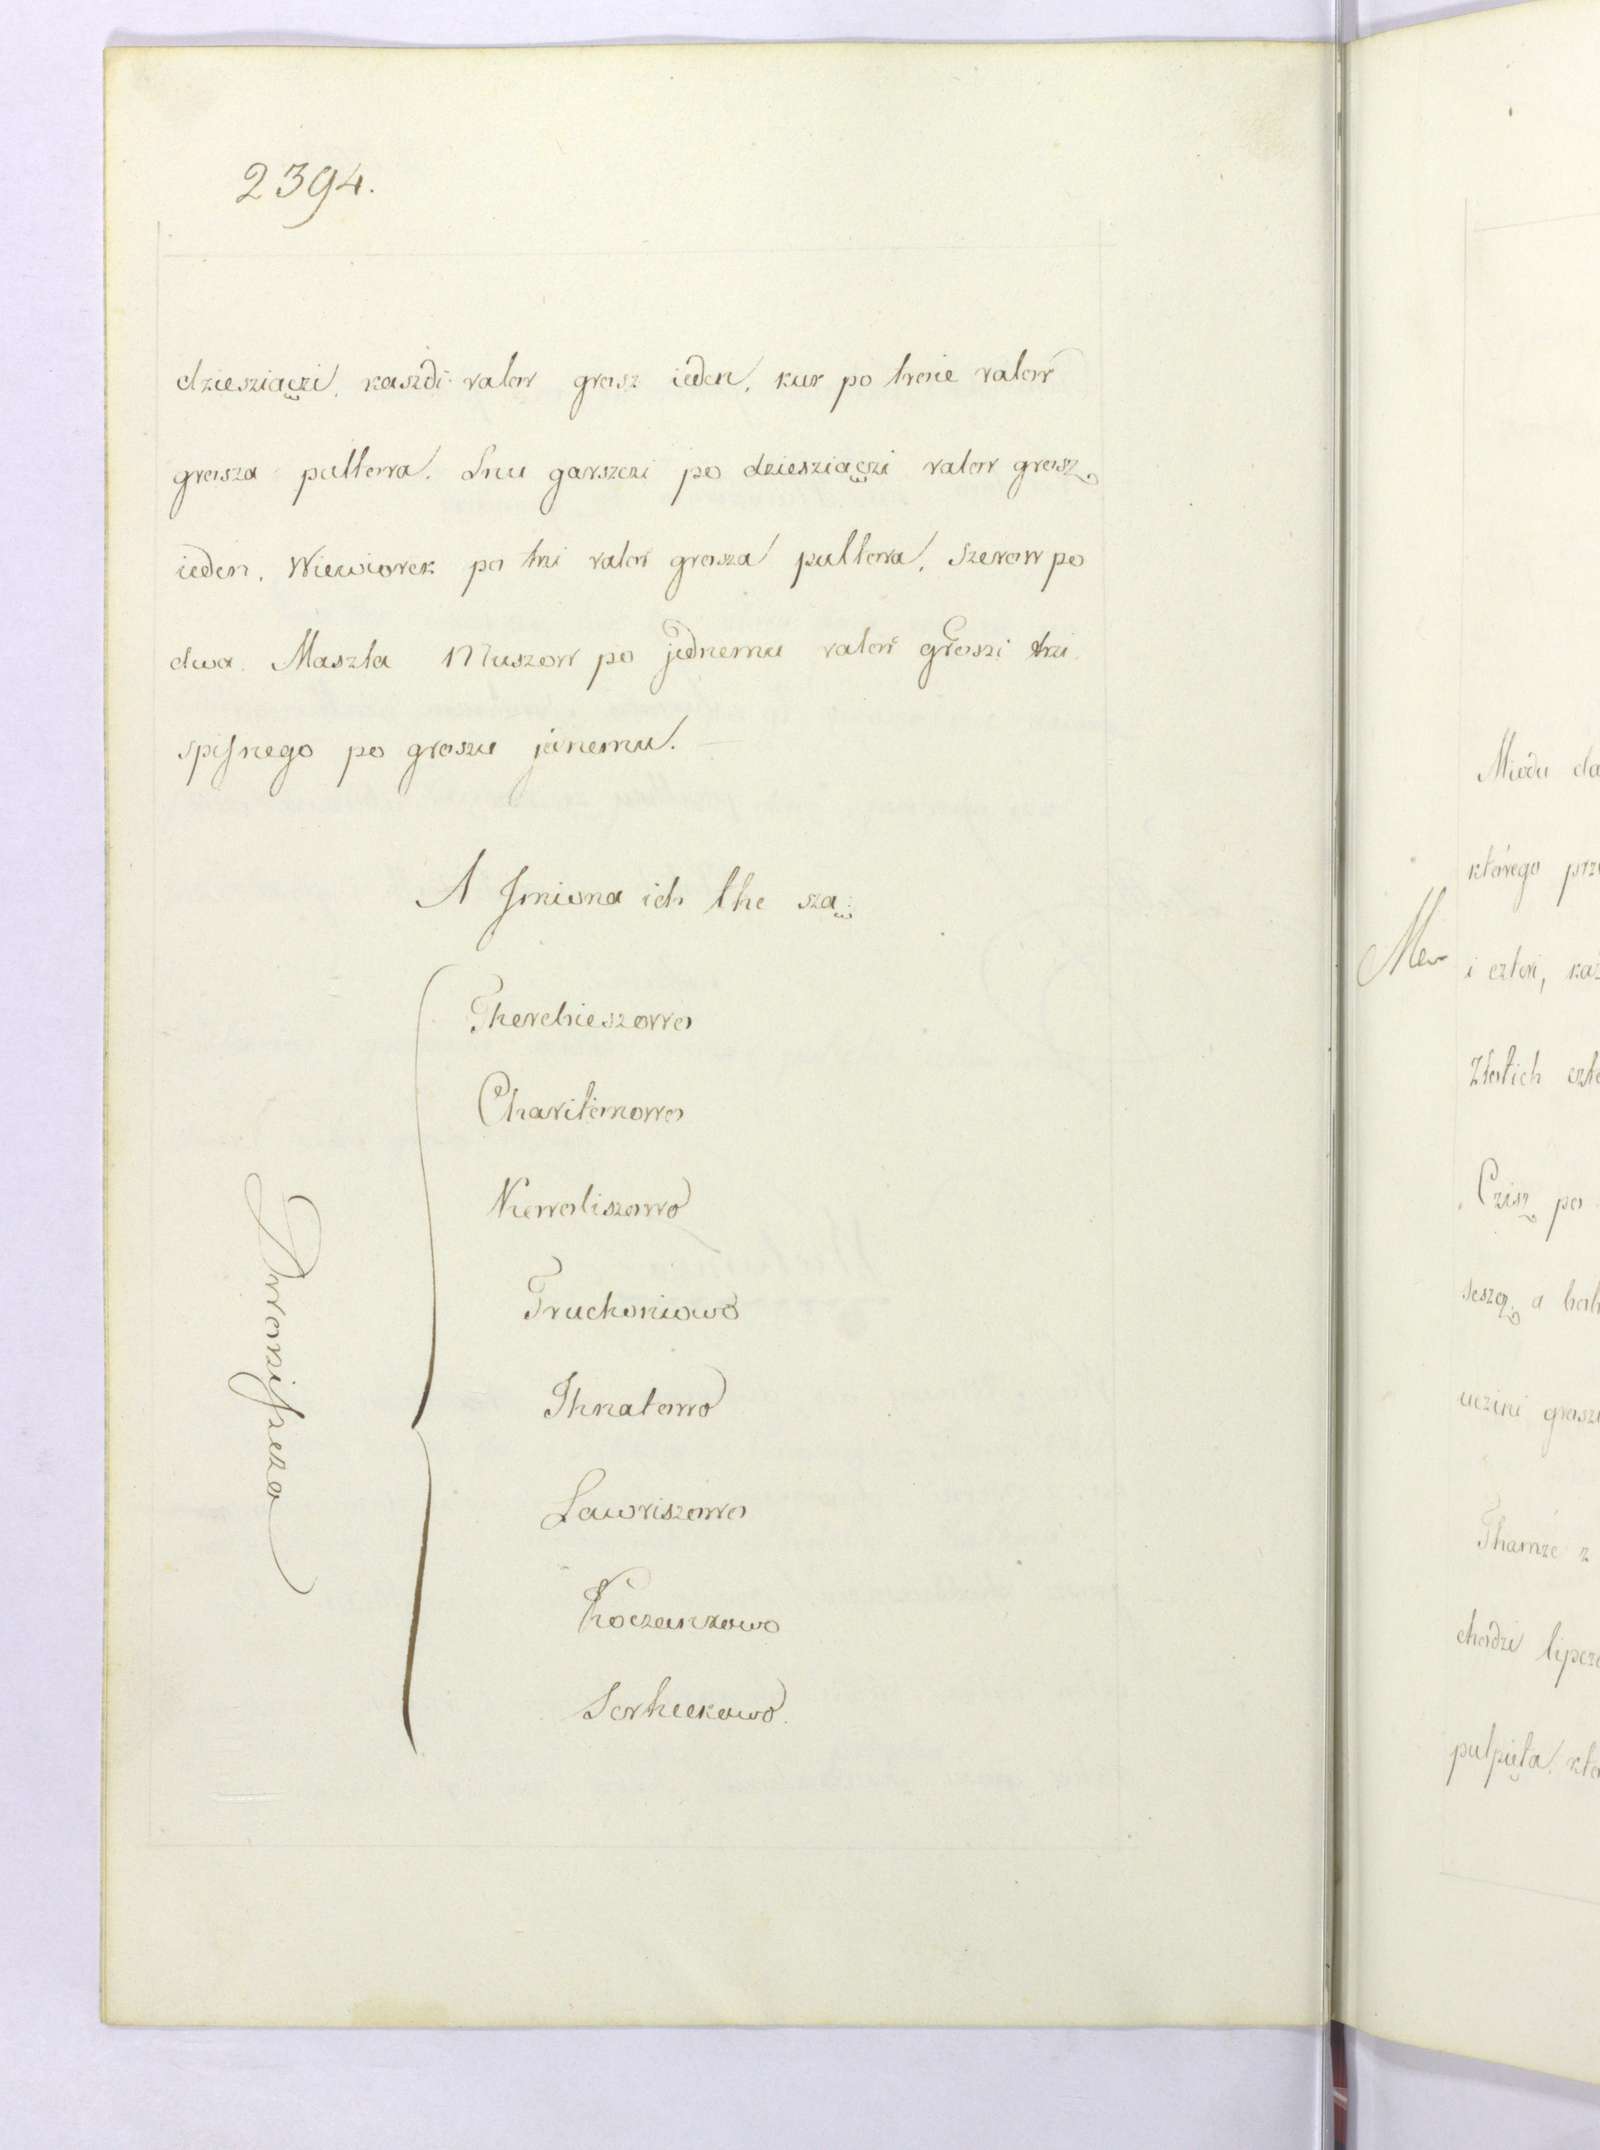 2394.
dziesziączi, kaszdi valor grosz ieden, kur po troie valor
grosza pultora. Lnu garszczi po dziesziączi valor grosz
ieden, Wiewiorek po tri valor grosza pultora, Szerow po
dwa. Maszla Muszow po jednemu valor groszi tri
spisnego po groszu jednemu. —
A Jmiona ich the szą:
Therehieszowo
Charitonowo
Kowaliszowo
Truchoniowo
Ihnatowo
Lawriszowo
Koczankowo
Serheekowo.
Miodu da
którego prz
i czteri, każ
Złotich czt
Czisz po
a bob
uczini grosz
Thamże z
chodzi lipcz
pulpięta, kto